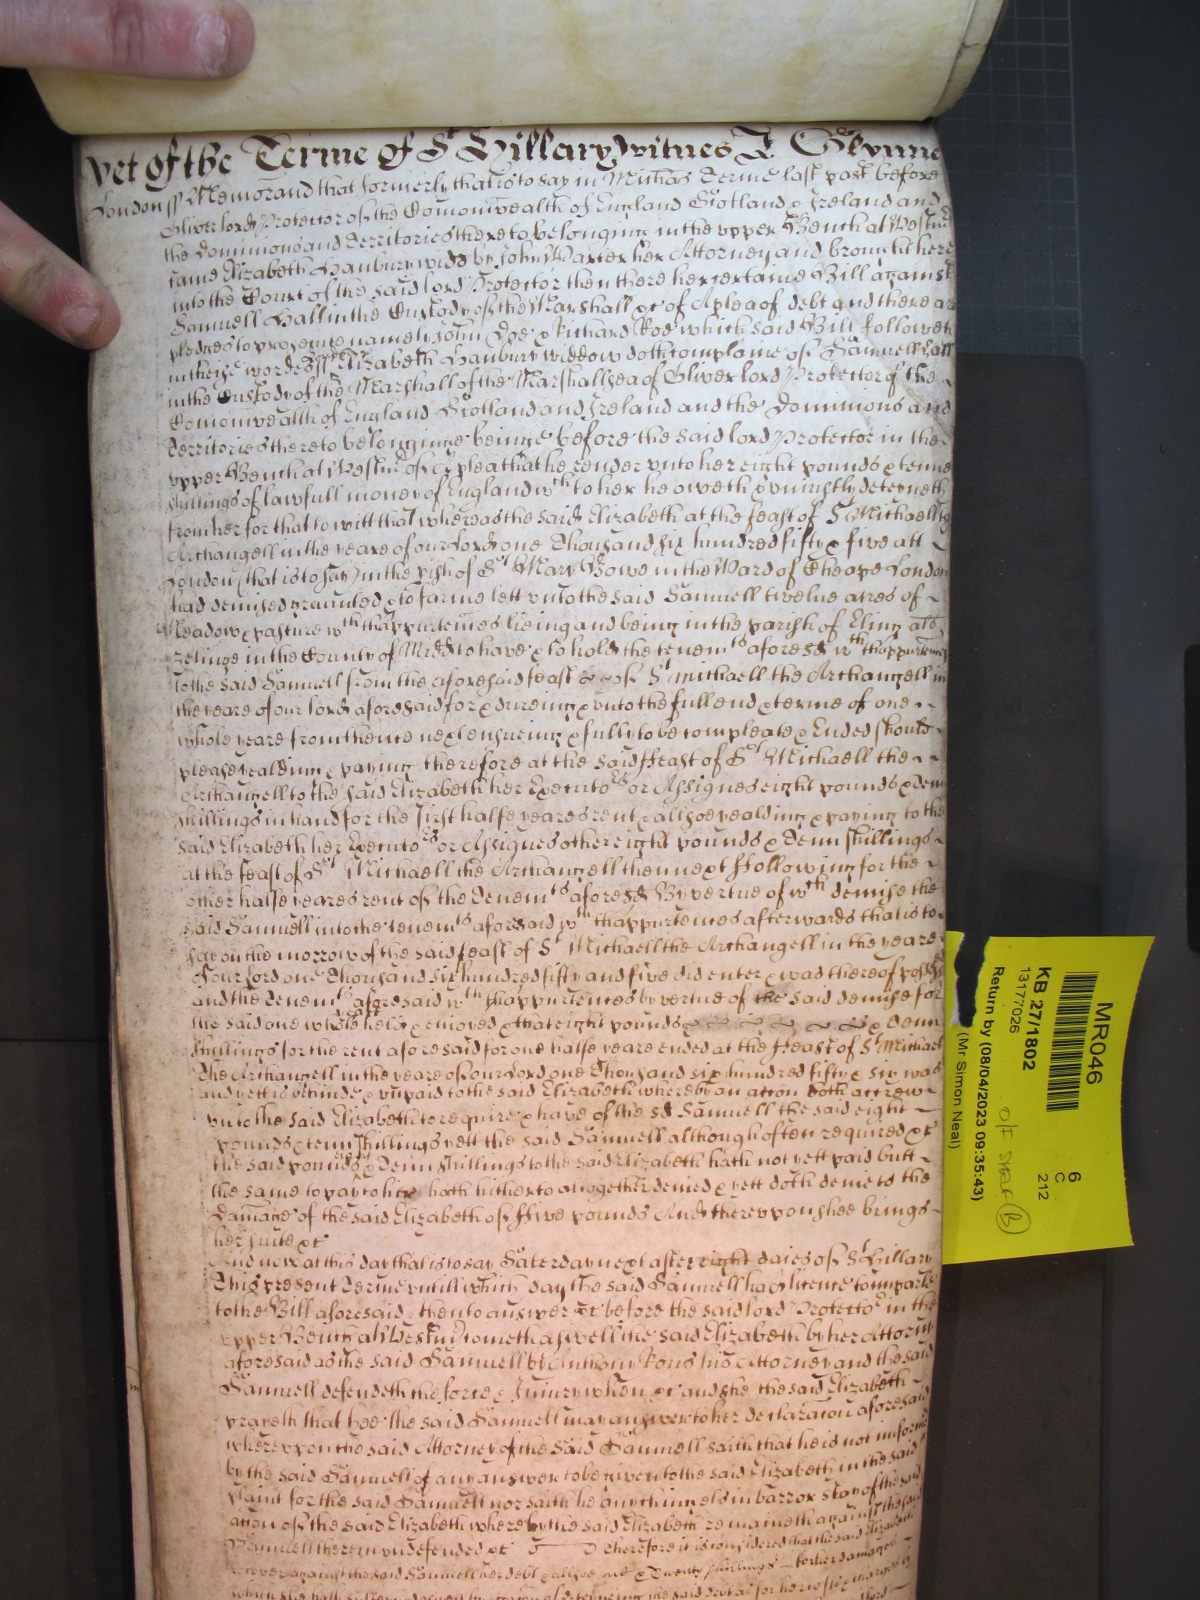 yet of the Terme of St Hillary witnes J Glynne
London ss Memorand that formerly that is to say in Michas Terme last past before
Oliver lord Protector of the Comonwealth of England Scotland & Ireland and
the Dominions and Territories thereto belonging in the upper Bench at Westmr
came Elizabeth Hanbury widd by John Waxter her Attorney and brought here
into the Court of the said lord Protector then there her certaine Bill against
Samuell Hall in the Custody of the Marshall &c of A plea of debt and there are
pledges to prosecute namely John Doe & Richard Roe which said Bill followeth
in theise wordes ss Elizabeth Hanbury widdow doth complaine of Samuell Hall
in the Custody of the Marshall of the Marshallsea of Oliver lord Protector of the
Comonwealth of England Scotland and Ireland and the Dominions and
Territories thereto belonginge beinge before the said lord Protector in the
upper Bench at Westmr of A plea that he render unto her eight pounds & tenne
shillings of lawfull money of England wch to her he oweth & uniustly deteyneth
from her for that to witt that whereas the said Elizabeth at the feast of St Michaell the
Archangell in the yeare of our Lord one Thousand six hundred fifty & five att
London (that is to say) in the pish of St Mary Bowe in the Ward of Cheape London
had demised graunted & to farme lett unto the said Samuell twelve acres of
Meadow & pasture wth thappurtences lieing and being in the parish of Eling als
Zelinge in the County of Midd to have & to hold the tenemts aforesd wth thappurtences
to the said Samuell from the aforesaid feast of St Michaell the Archangell in
the yeare of our lord aforesaid for & dureing & unto the full end & terme of one
whole yeare from thence next ensueing & fully to be compleate & Ended should
please yealding & paying therefore at the said Feast of St Michaell the
Archangell to the said Elizabeth her Executors or Assignes eight pounds & Tenn
shillings in hand for the first halfe yeares rent & allsoe yealding & paying to the
said Elizabeth her Executors or Assignes other eight pounds & Tenn shillings
at the feast of St Michaell the Archangell then next Following for the
other halfe yeares rent of the Tenemts aforesd By vertue of wch demise the
said Samuell into the tenemts aforesaid wth thappurtences afterwards that is to
say on the morrow of the said feast of St Michaell the Archangell in the yeare
of our Lord one Thousand six hundred fifty and five did enter & was thereof possessed
and the Tenemts aforesaid wth thappurtences by vertue of the said demise for
the said one whole yeare held & enioyed & that eight pounds & Tenn
shillings for the rent aforesaid for one halfe yeare ended at the Feast of St Michael
The Archangell in the yeare of our Lord one Thousand six hundred fifty & six was
and yett is behinde & unpaid to the said Elizabeth whereby an accon hath accrewed
unto the said Elizabeth to require & have of the sd Samuell the said eight
pounds & tenn shillings yett the said Samuell although often required &c
the said pounds & Tenn shillings to the said Elizabeth hath not yett paid butt
the same to pay to her hath hitherto altogether denied & yett doth denie to the
Damage of the said Elizabeth of Five pounds And thereupon shee brings
her suite &c
And now at this day that is to say Saterday next after eight daies of St Hillary
This present Terme untill which day the said Samuell had licence to imparle
to the Bill aforesaid & then to answer &c before the said lord Protector in the
upper Bench at Westmr cometh aswell the said Elizabeth by her Attorny
aforesaid as the said Samuell by Anthony Rous his Attorney and the said
Samuell defendeth the force & Iniury when &c and she the said Elizabeth
prayeth that hee the said Samuell may answer to her declaracion aforesaid
whereupon the said Attorney of the said Samuell saith that he is not informed
by the said Samuell of any answer to be given to the said Elizabeth in the said
plaint for the said Samuell nor saith he any thing els in barr or stay of the said
accon of the said Elizabeth whereby the said Elizabeth remaineth against the said
Samuell therein undefended &c Therefore it is considered that the said Elizabeth
recover against the said Samuell her debt & allsoe & Twenty shillings for her damages
which she hath by occasion of deteyning the said debt as for her costs & charges by
MR046
6
C
212
KB 27/1802
13177026
O/F Staff (B)
Return by (08/04/2023 09:35:43)
(Mr Simon Neal)